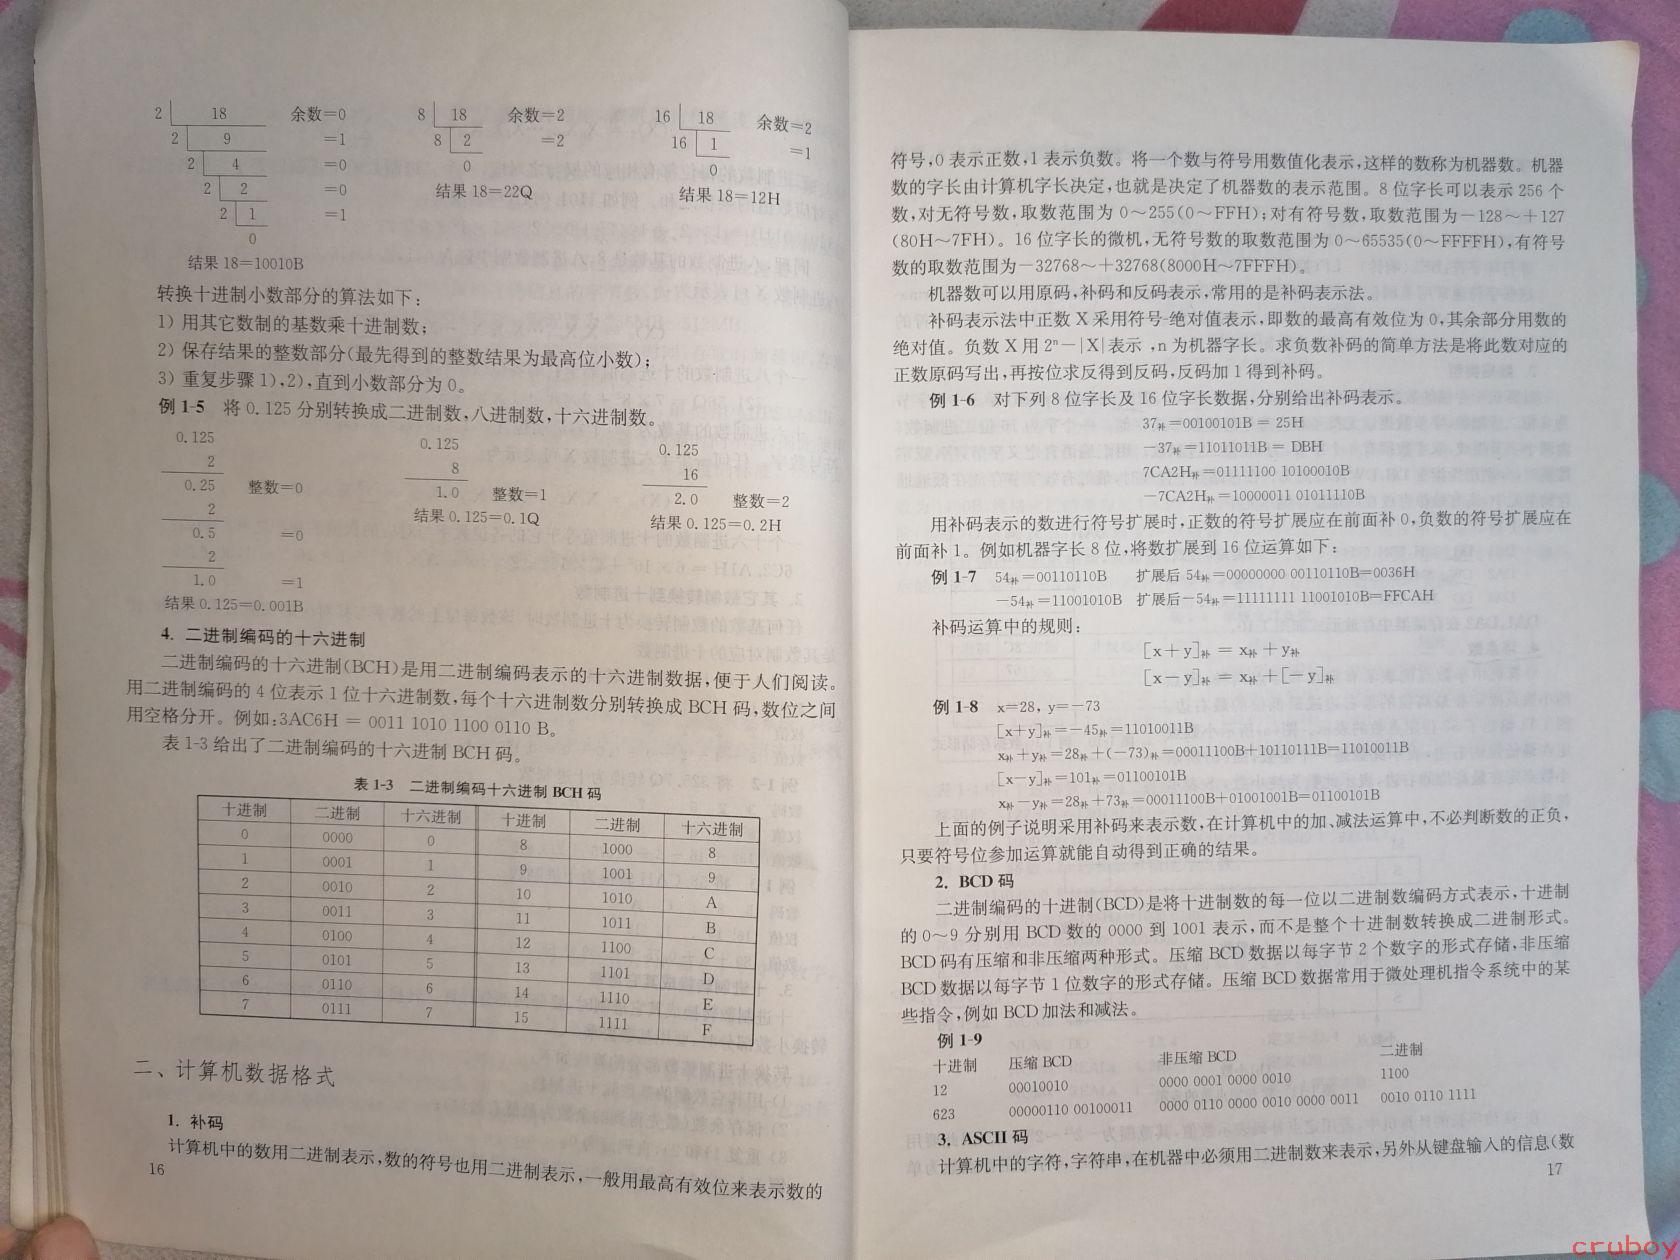 2 18 余数=0 8 18 余数=2 16 18 余数=2
2 9 =1 8 2 =2 16 1 =1
2 4 =0 0 0
2 2 =0 结果 18=22Q 结果 18=12H
2 1 =1
0
结果 18=10010B
转换十进制小数部分的算法如下:
1) 用其它数制的基数乘十进制数;
2) 保存结果的整数部分(最先得到的整数结果为最高位小数);
3) 重复步骤 1),2),直到小数部分为 0。
例 1-5 将 0.125 分别转换成二进制数,八进制数,十六进制数。
0.125 0.125 0.125
2 8 16
0.25 整数=0 1.0 整数=1 2.0 整数=2
2 结果 0.125=0.1Q 结果 0.125=0.2H
0.5 =0
2
1.0 =1
结果 0.125=0.001B
4. 二进制编码的十六进制
二进制编码的十六进制(BCH)是用二进制编码表示的十六进制数据,便于人们阅读。
用二进制编码的 4 位表示 1 位十六进制数,每个十六进制数分别转换成 BCH 码,数位之间
用空格分开。例如:3AC6H = 0011 1010 1100 0110 B。
表 1-3 给出了二进制编码的十六进制 BCH 码。
表 1-3 二进制编码十六进制 BCH 码
十进制 二进制 十六进制 十进制 二进制 十六进制
0 0000 0 8 1000 8
1 0001 1 9 1001 9
2 0010 2 10 1010 A
3 0011 3 11 1011 B
4 0100 4 12 1100 C
5 0101 5 13 1101 D
6 0110 6 14 1110 E
7 0111 7 15 1111 F
二、计算机数据格式
1. 补码
计算机中的数用二进制表示,数的符号也用二进制表示,一般用最高有效位来表示数的
16
符号,0 表示正数,1 表示负数。将一个数与符号用数值化表示,这样的数称为机器数。机器
数的字长由计算机字长决定,也就是决定了机器数的表示范围。8 位字长可以表示 256 个
数,对无符号数,取数范围为 0~255(0~FFH);对有符号数,取数范围为-128~+127
(80H~7FH)。16 位字长的微机,无符号数的取数范围为 0~65535(0~FFFFH),有符号
数的取数范围为-32768~+32768(8000H~7FFFH)。
机器数可以用原码,补码和反码表示,常用的是补码表示法。
补码表示法中正数 X 采用符号-绝对值表示,即数的最高有效位为 0,其余部分用数的
绝对值。负数 X 用 2ⁿ-|X|表示,n 为机器字长。求负数补码的简单方法是将此数对应的
正数原码写出,再按位求反得到反码,反码加 1 得到补码。
例 1-6 对下列 8 位字长及 16 位字长数据,分别给出补码表示。
37补=00100101B = 25H
-37补=11011011B = DBH
7CA2H补=01111100 10100010B
-7CA2H补=10000011 01011110B
用补码表示的数进行符号扩展时,正数的符号扩展应在前面补 0,负数的符号扩展应在
前面补 1。例如机器字长 8 位,将数扩展到 16 位运算如下:
例 1-7 54补=00110110B 扩展后 54补=00000000 00110110B=0036H
-54补=11001010B 扩展后-54补=11111111 11001010B=FFCAH
补码运算中的规则:
[x+y]补 = x补+y补
[x-y]补 = x补+[-y]补
例 1-8 x=28, y=-73
[x+y]补=-45补=11010011B
x补+y补=28补+(-73)补=00011100B+10110111B=11010011B
[x-y]补=101补=01100101B
x补-y补=28补+73补=00011100B+01001001B=01100101B
上面的例子说明采用补码来表示数,在计算机中的加、减法运算中,不必判断数的正负,
只要符号位参加运算就能自动得到正确的结果。
2. BCD 码
二进制编码的十进制(BCD)是将十进制数的每一位以二进制数编码方式表示,十进制
的 0~9 分别用 BCD 数的 0000 到 1001 表示,而不是整个十进制数转换成二进制形式。
BCD 码有压缩和非压缩两种形式。压缩 BCD 数据以每字节 2 个数字的形式存储,非压缩
BCD 数据以每字节 1 位数字的形式存储。压缩 BCD 数据常用于微处理机指令系统中的某
些指令,例如 BCD 加法和减法。
例 1-9
十进制 压缩 BCD 非压缩 BCD 二进制
12 00010010 0000 0001 0000 0010 1100
623 00000110 00100011 0000 0110 0000 0010 0000 0011 0010 0110 1111
3. ASCII 码
计算机中的字符,字符串,在机器中必须用二进制数来表示,另外从键盘输入的信息(数
17
cruboy